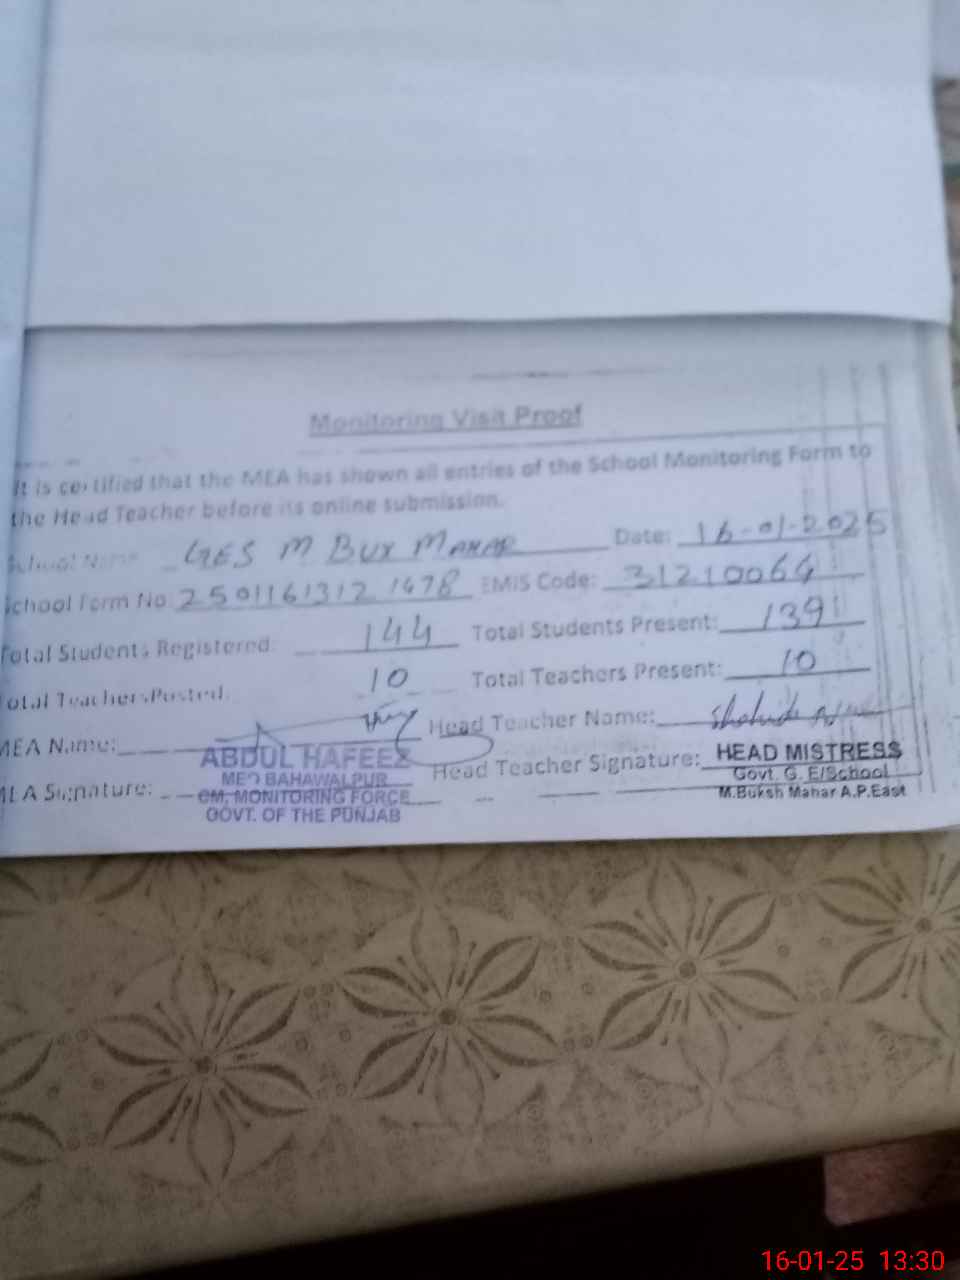 Monitoring Visit Proof
It is certified that the MEA has shown all entries of the School Monitoring Form to
the Head Teacher before its online submission.
School Name GES M BUX MAHAR Date: 16-01-2025
School Form No 2501161312 1478 EMIS Code: 31210064
Total Students Registered: 144 Total Students Present: 139
Total Teachers Posted: 10 Total Teachers Present: 10
MEA Name: Head Teacher Name: Shahida
ABDUL HAFEEZ
MEA Signature: Head Teacher Signature: HEAD MISTRESS
MEO BAHAWALPUR Govt. G. E/School
CM, MONITORING FORCE M.Buksh Mahar A.P.East
GOVT. OF THE PUNJAB
16-01-25 13:30